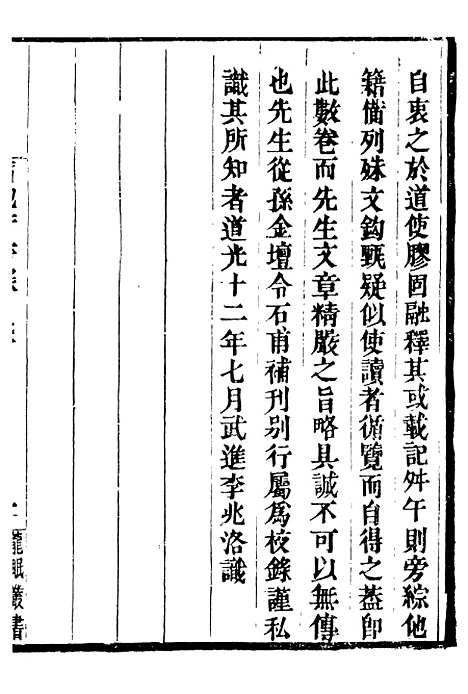 自衷之於道使膠固融釋其或載記舛午則旁綜他
籍僃列殊文鈎甄疑似使讀者循覽而自得之葢卽
此數卷而先生文章精嚴之旨略具誠不可以無傳
也先生從孫金壇令石甫補刊别行屬爲校錄謹私
識其所知者道光十二年七月武進李兆洛識
龍眠叢書